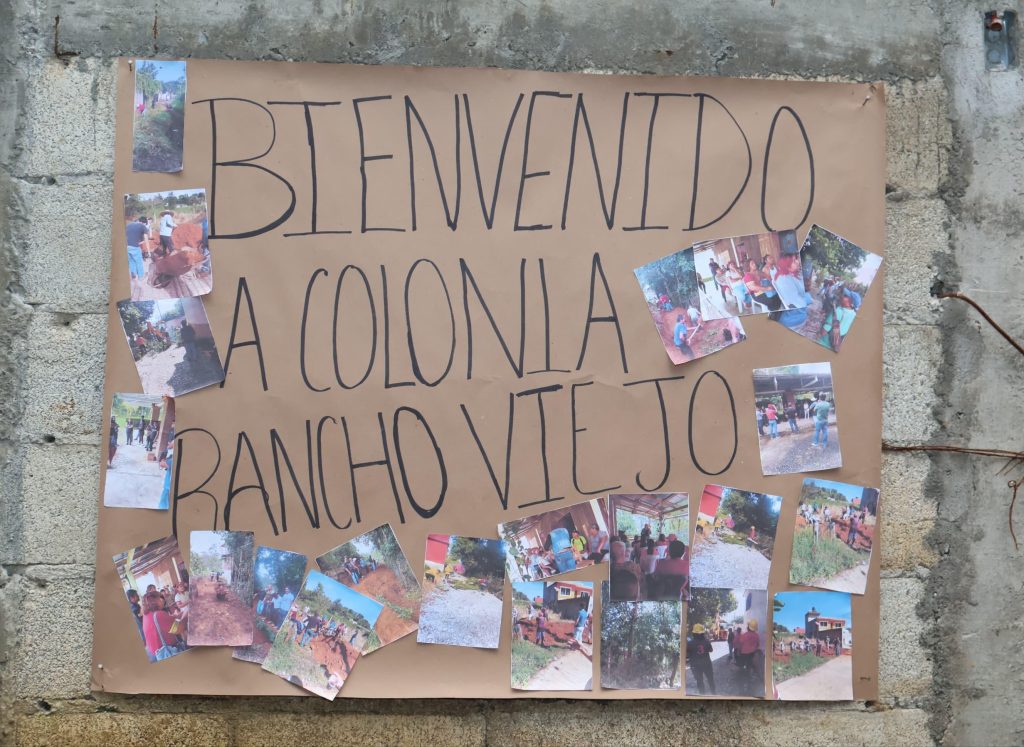 BIENVENIDO
A COLONIA
RANCHO VIEJO